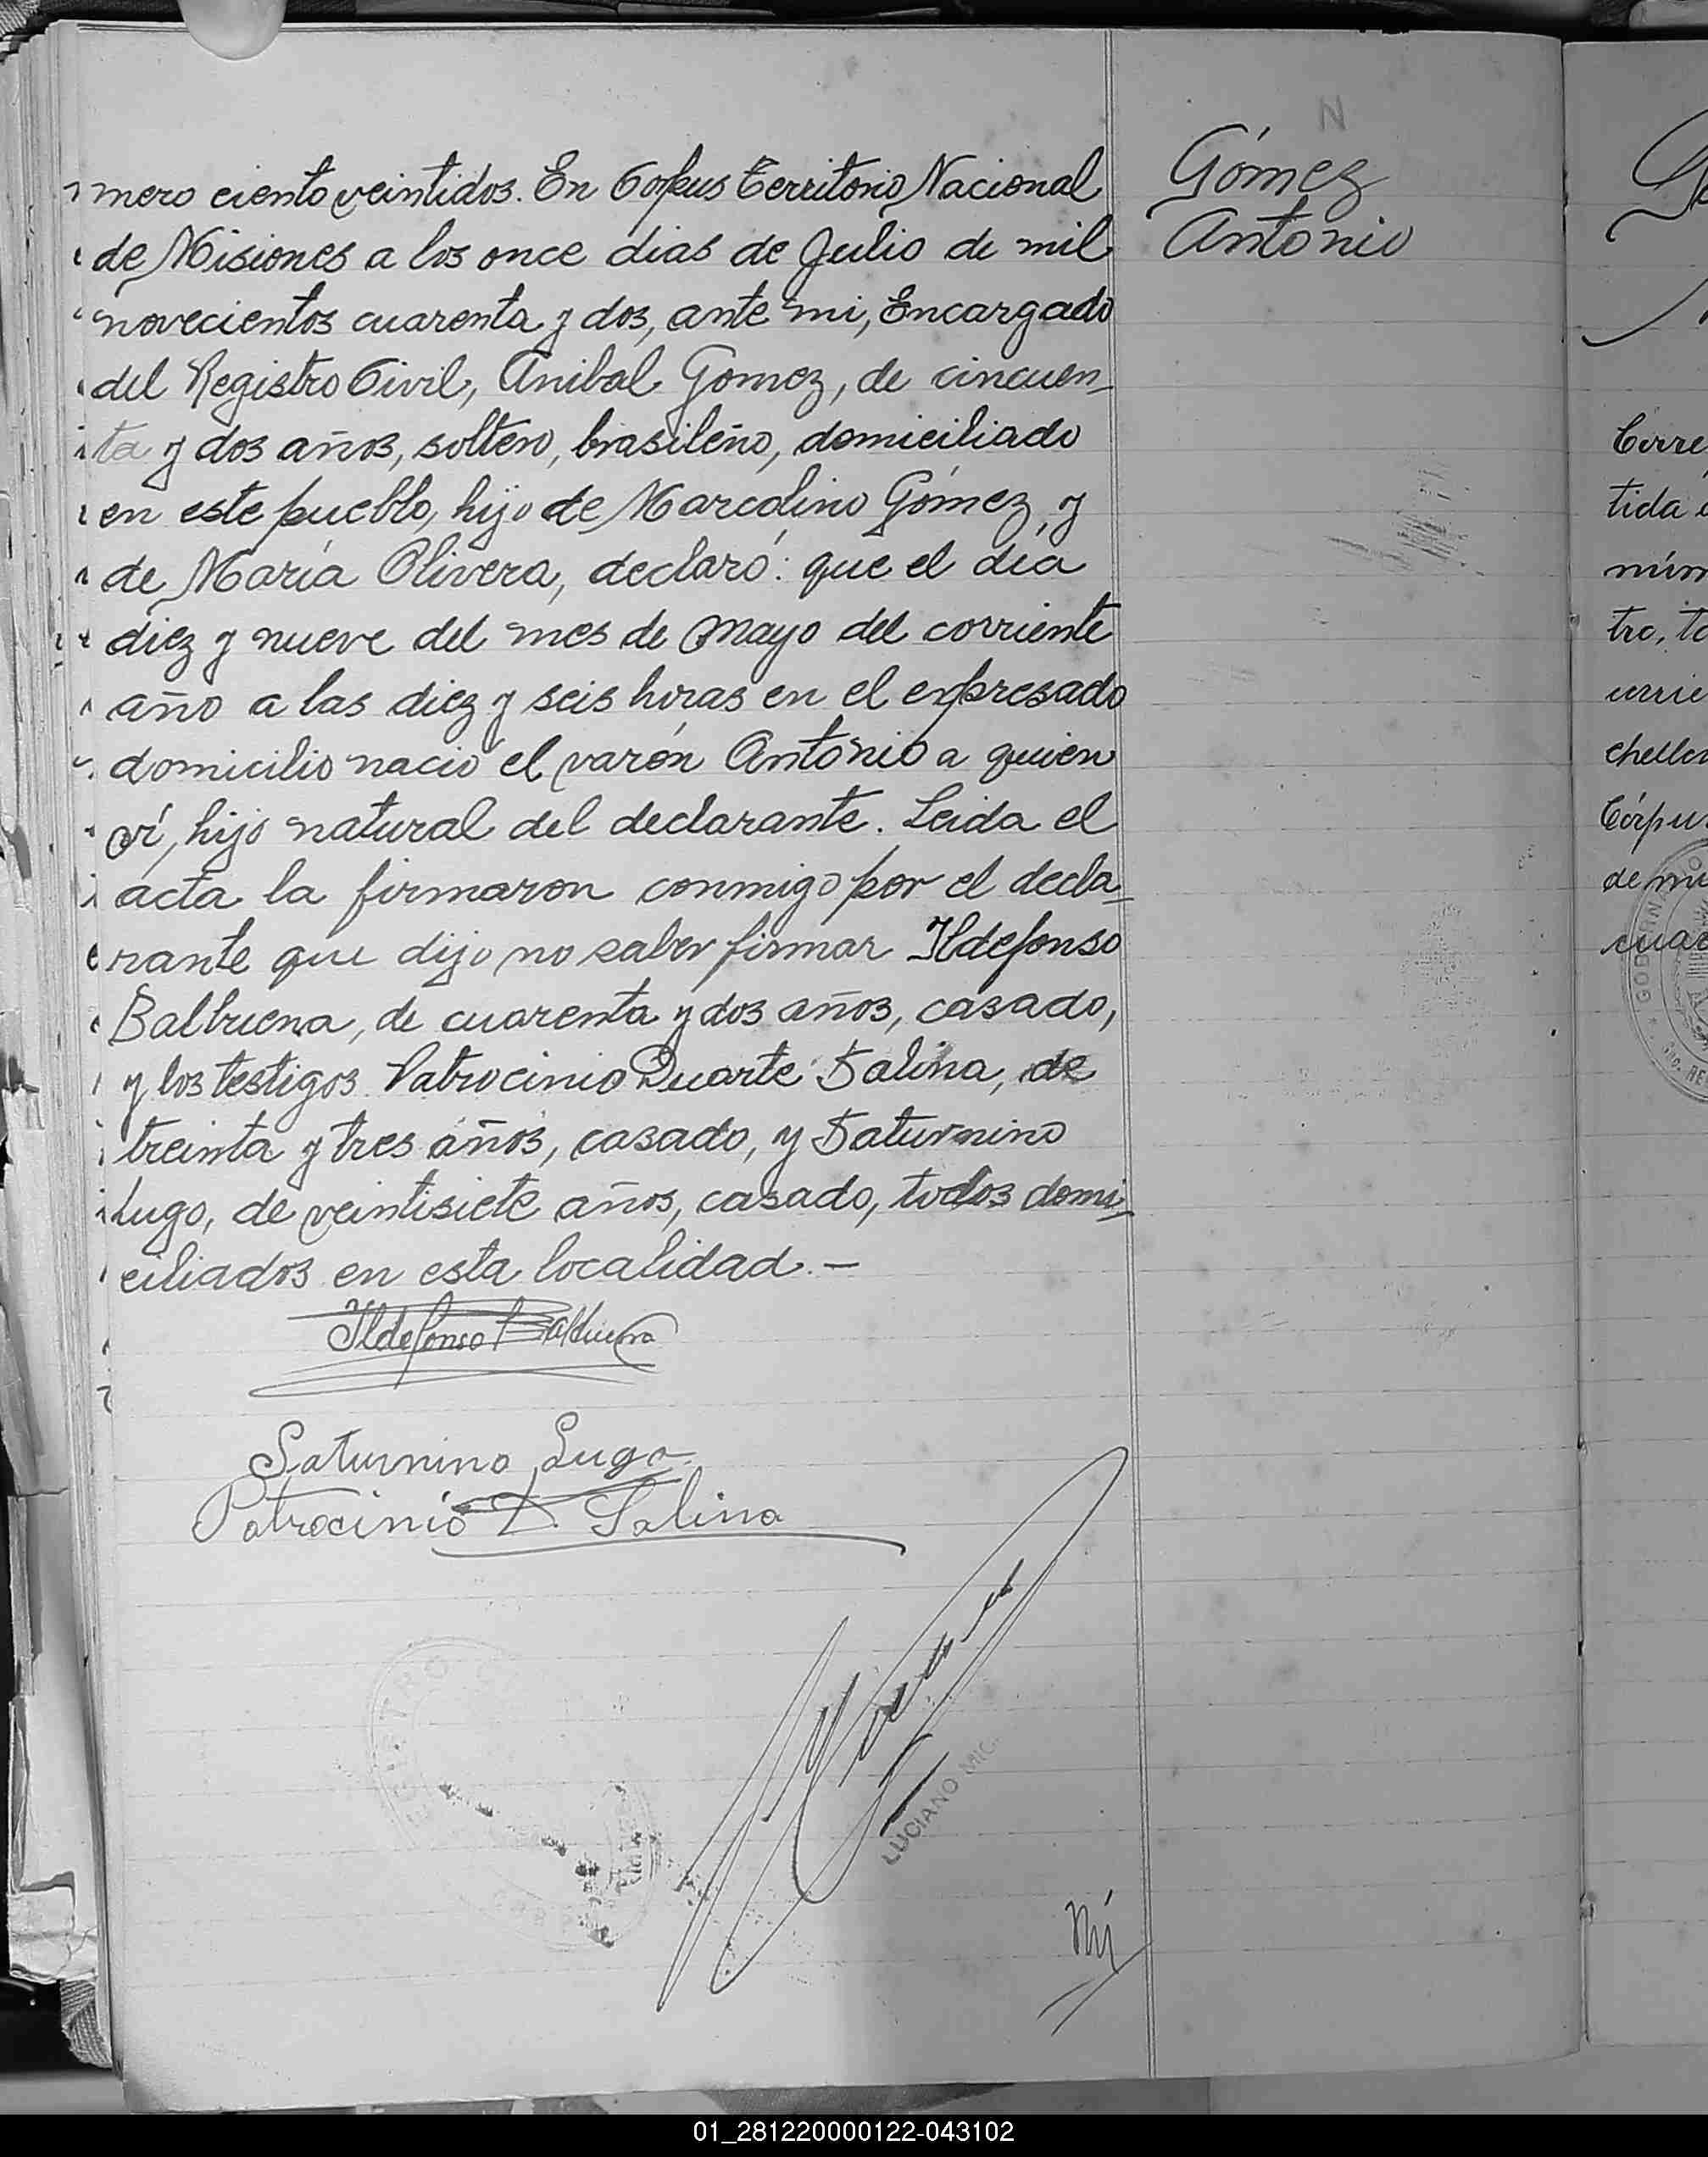 mero ciento veintidos. En Corpus Territorio Nacional
de Misiones a los once dias de Julio de mil
novecientos cuarenta y dos, ante mi, Encargado
del Registro Civil, Anibal Gomez, de cincuen-
ta y dos años, soltero, brasileño, domiciliado
en este pueblo, hijo de Marcolino Gómez, y
de María Olivera, declaró: que el día
diez y nueve del mes de mayo del corriente
año a las diez y seis horas en el expresado
domicilio nació el varón Antonio a quien
ví, hijo natural del declarante. Leida el
acta la firmaron conmigo por el decla-
rante que dijo no saber firmar Ildefonso
Balbuena, de cuarenta y dos años, casado,
y los testigos Patrocinio Duarte Salina, de
treinta y tres años, casado, y Saturnino
Lugo, de veintisiete años, casado, todos domi-
ciliados en esta localidad. —
Ildefonso Balbuena
Saturnino Lugo
Patrocinio D. Salina
LUCIANO MIC
Nú
N
Gómez
Antonio
tida
tro,
Córpus
de mi
GOB
01_281220000122-043102